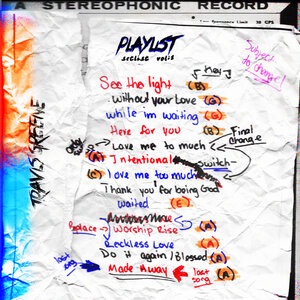 A STEREOPHONIC RECORD
PLAYLIST
setlist vol.2
Key
Subject
to
Change!
See the light (B)
without your Love (G)
while im waiting (G)
Here for you (B)
Love me to much
Final
Change
(A) Intentional
Switch
(C) I Love me too much
Thank you for being God
waited (E)
Replace → Worship Rise (A)
Reckless Love (A)
Do it again / Blessed (A)
last
song
Made Away
last
song
(A)
TRAVIS GREENE